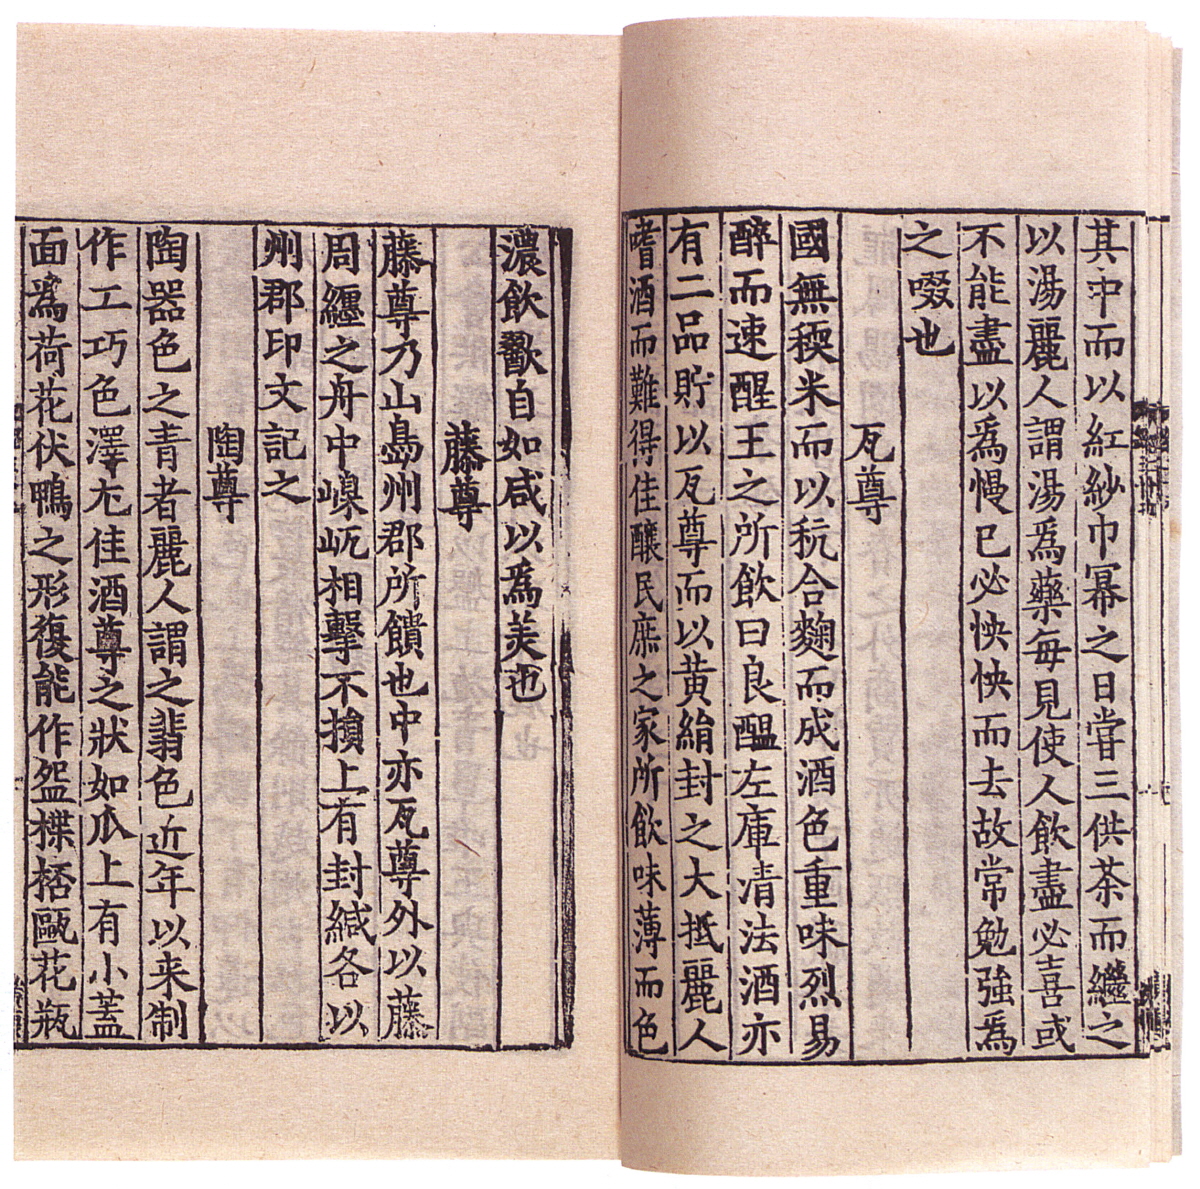 其中而以紅紗巾冪之日嘗三供茶而繼之
以湯麗人謂湯爲藥每見使人飲盡必喜或
不能盡以爲慢已必怏怏而去故常勉強爲
之啜也
瓦尊
國無稬米而以秔合麴而成酒色重味烈易
醉而速醒王之所飲曰良醖左庫凊法酒亦
有二品貯以瓦尊而以黄絹封之大抵麗人
嗜酒而難得佳釀民庶之家所飲味薄而色
濃飲歠自如咸以爲美也
藤尊
藤尊乃山島州郡所饋也中亦瓦尊外以藤
周纏之舟中嵲屼相擊不損上有封緘各以
州郡印文記之
陶尊
陶器色之青者麗人謂之翡色近年以来制
作工巧色澤尤佳酒尊之狀如瓜上有小蓋
面爲荷花伏鴨之形復能作盌楪桮甌花瓶